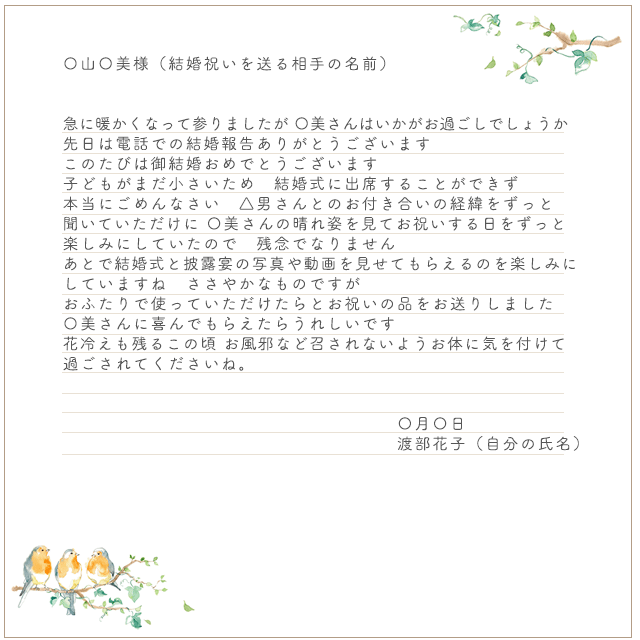 〇山〇美様（結婚祝いを送る相手の名前）
急に暖かくなって参りましたが 〇美さんはいかがお過ごしでしょうか
先日は電話での結婚報告ありがとうございます
このたびは御結婚おめでとうございます
子どもがまだ小さいため　結婚式に出席することができず
本当にごめんなさい　△男さんとのお付き合いの経緯をずっと
聞いていただけに 〇美さんの晴れ姿を見てお祝いする日をずっと
楽しみにしていたので　残念でなりません
あとで結婚式と披露宴の写真や動画を見せてもらえるのを楽しみに
していますね　ささやかなものですが
おふたりで使っていただけたらとお祝いの品をお送りしました
〇美さんに喜んでもらえたらうれしいです
花冷えも残るこの頃 お風邪など召されないようお体に気を付けて
過ごされてくださいね。
〇月〇日
渡部花子（自分の氏名）